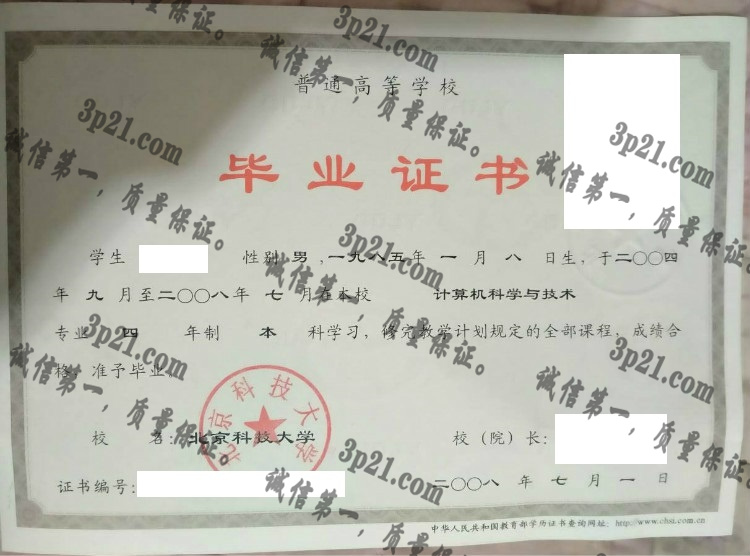 普通高等学校
毕业证书
学生 性别 男 ,一九八五年 一 月 八 日生,于二〇〇四
年 九 月至二〇〇八年 七 月在本校 计算机科学与技术
专业 四 年制 本 科学习,修完教学计划规定的全部课程,成绩合
格,准予毕业。
北京科技大学
校 名:北京科技大学 校(院)长:
证书编号: 二〇〇八 年 七 月 一 日
中华人民共和国教育部学历证书查询网址: http://www.chsi.com.cn
3p21.com
诚信第一,质量保证。
3p21.com
诚信第一,质量保证。
3p21.com
诚信第一,质量保证。
3p21.com
诚信第一,质量保证。
3p21.com
诚信第一,质量保证。
3p21.com
诚信第一,质量保证。
3p21.com
诚信第一,质量保证。
3p21.com
诚信第一,质量保证。
3p21.com
诚信第一,质量保证。